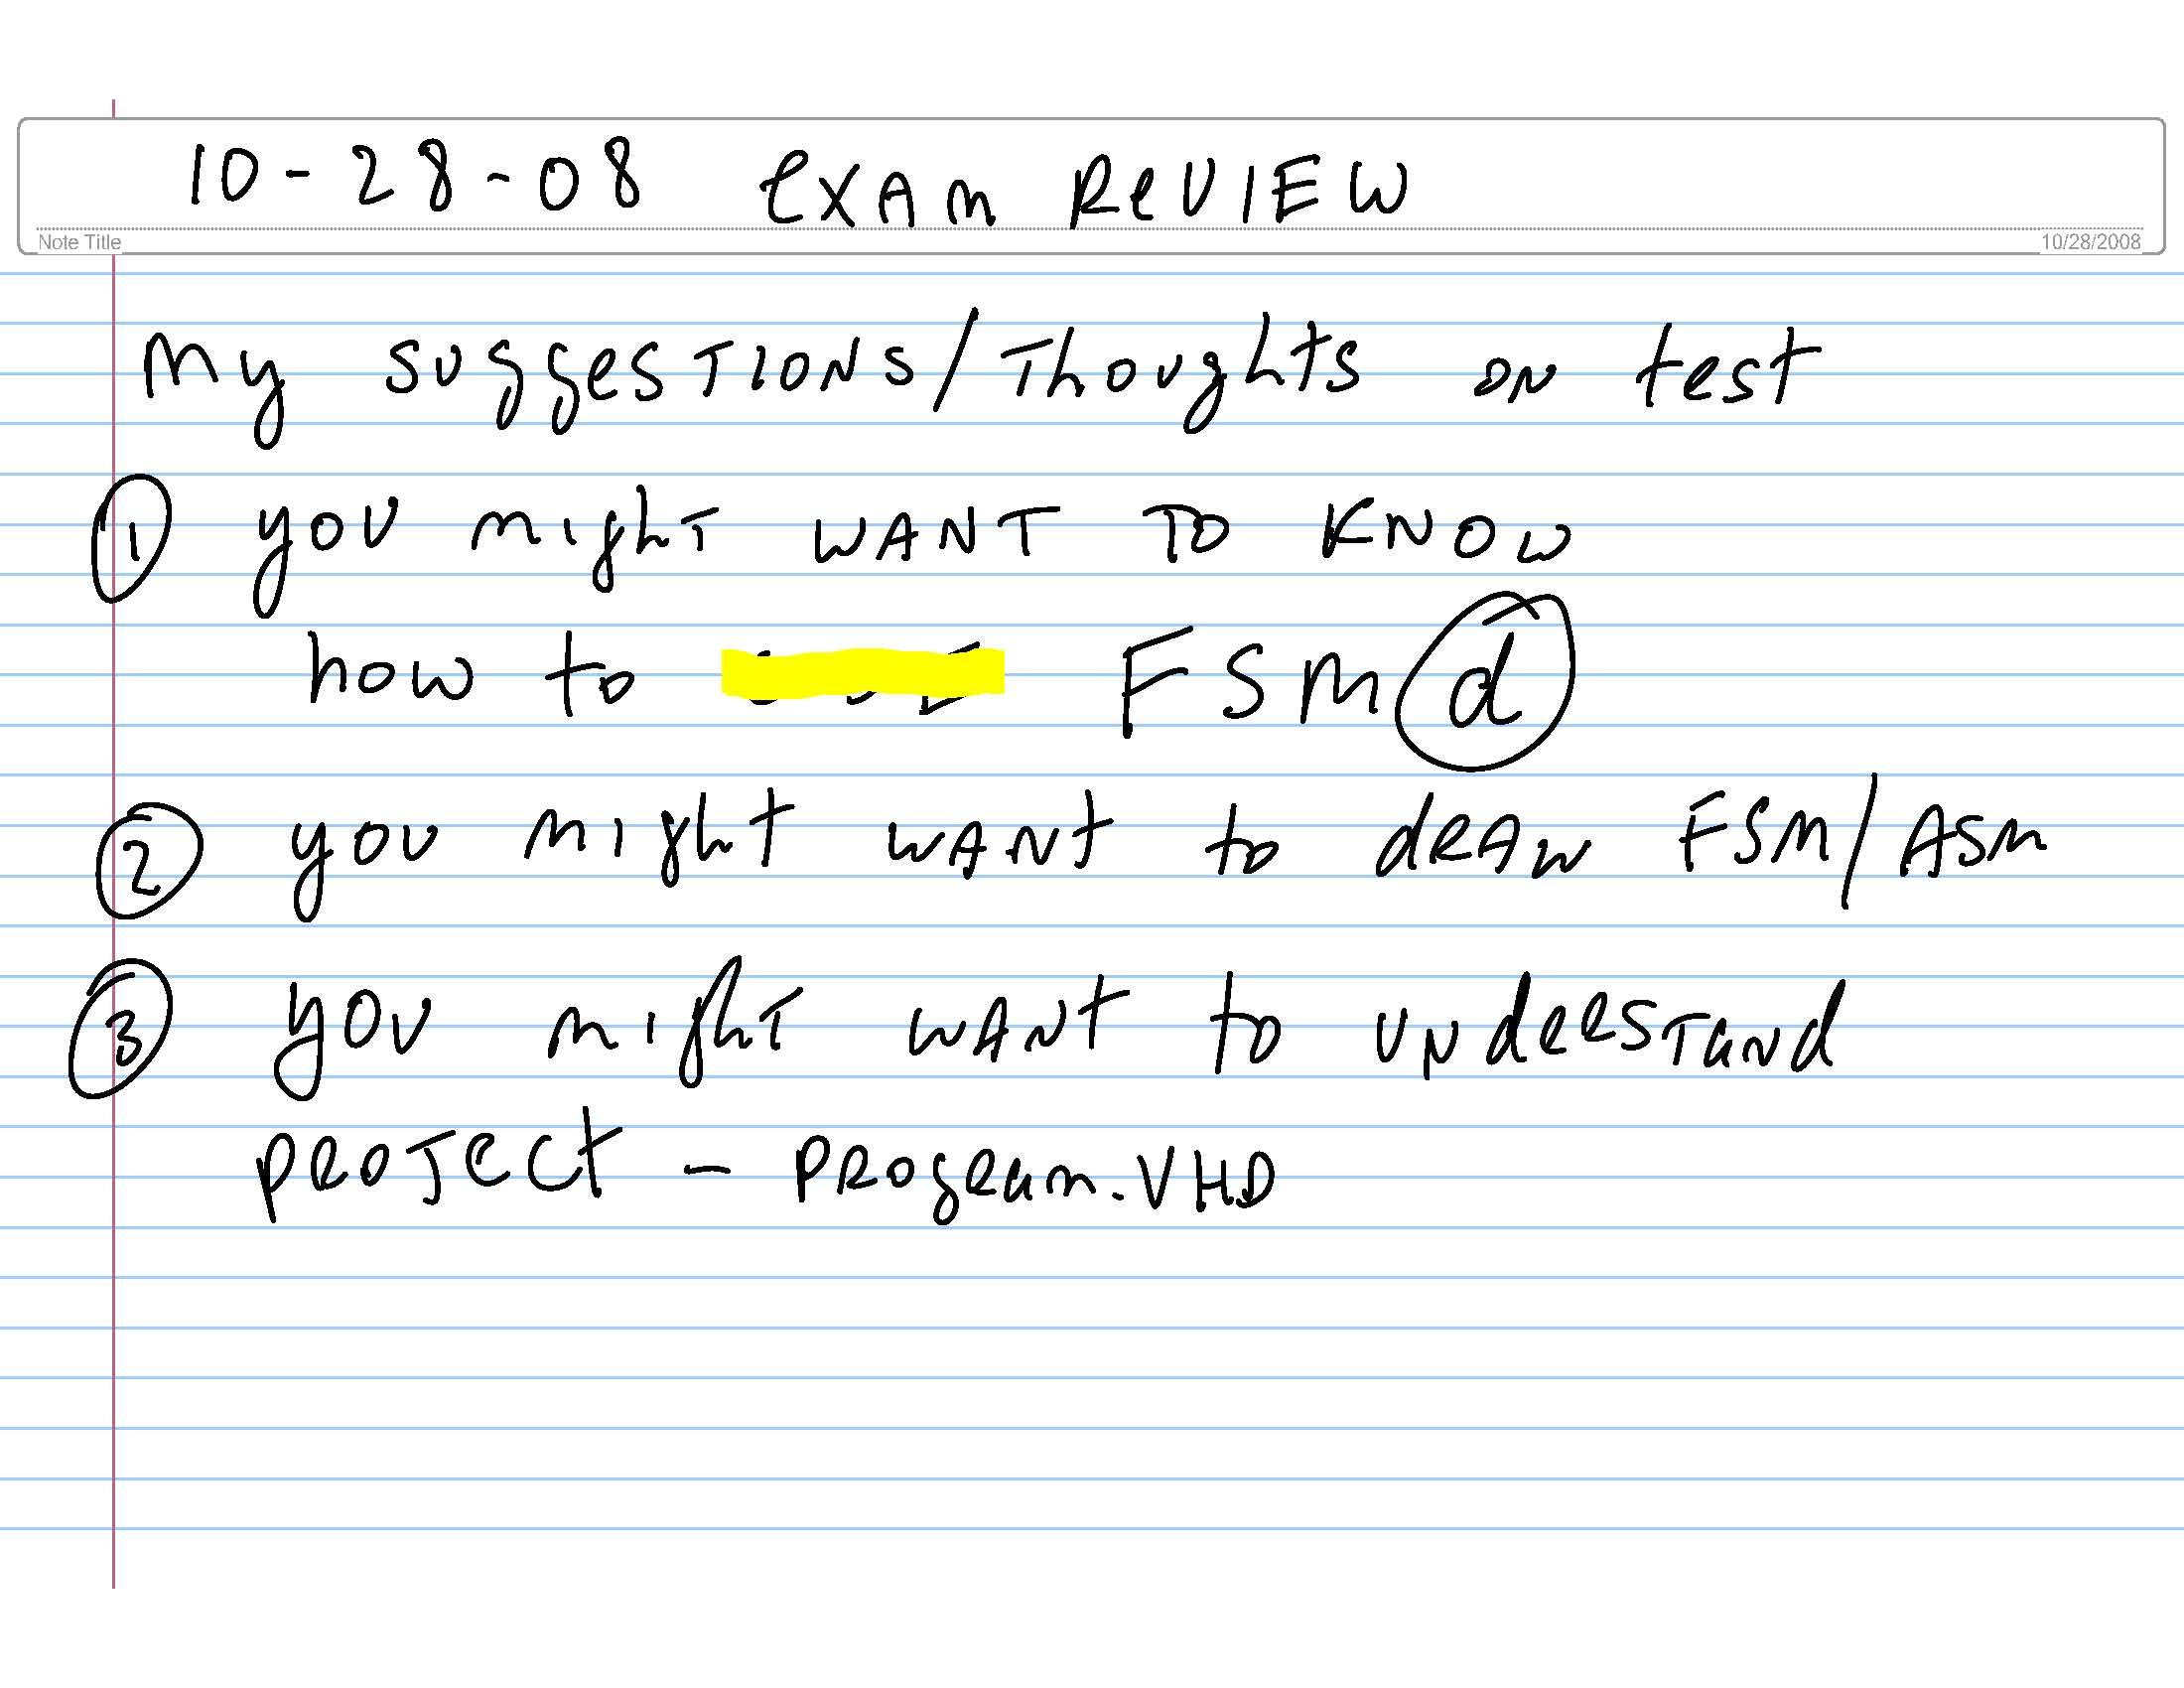 10-28-08 EXAM REVIEW
Note Title
10/28/2008
My suggestions/Thoughts on test
1 you might WANT TO KNOW
how to FSMd
2 you might WANT to dRAW FSM/ASM
3 you might WANT to UNdeRSTand
PROJECt - PROgRam.VHD